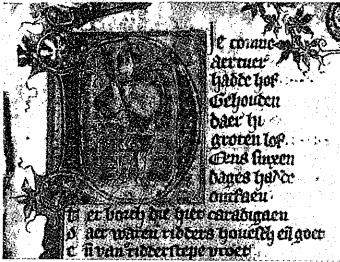 ie coninc
aertuer
hadde hof
Gehouden
daer hi
groten lof
Eens sinxen
dages hadde
ontfaen
t er borch die hiet caradigaen
d aer waren ridders houesch eñ goet
e ñ van ridderscepe vroet